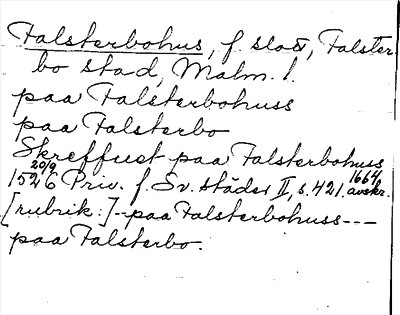 Falsterbohus, f. slott, Falster-
bo stad, Malm. l.
paa Falsterbohuss
paa Falsterbo
Skreffuet paa Falsterbohuss
20/9 1526 Priv. f. Sv. städer II, s. 421. 1664, avskr.
[rubrik:]--paa Falsterbohuss---
paa Falsterbo.